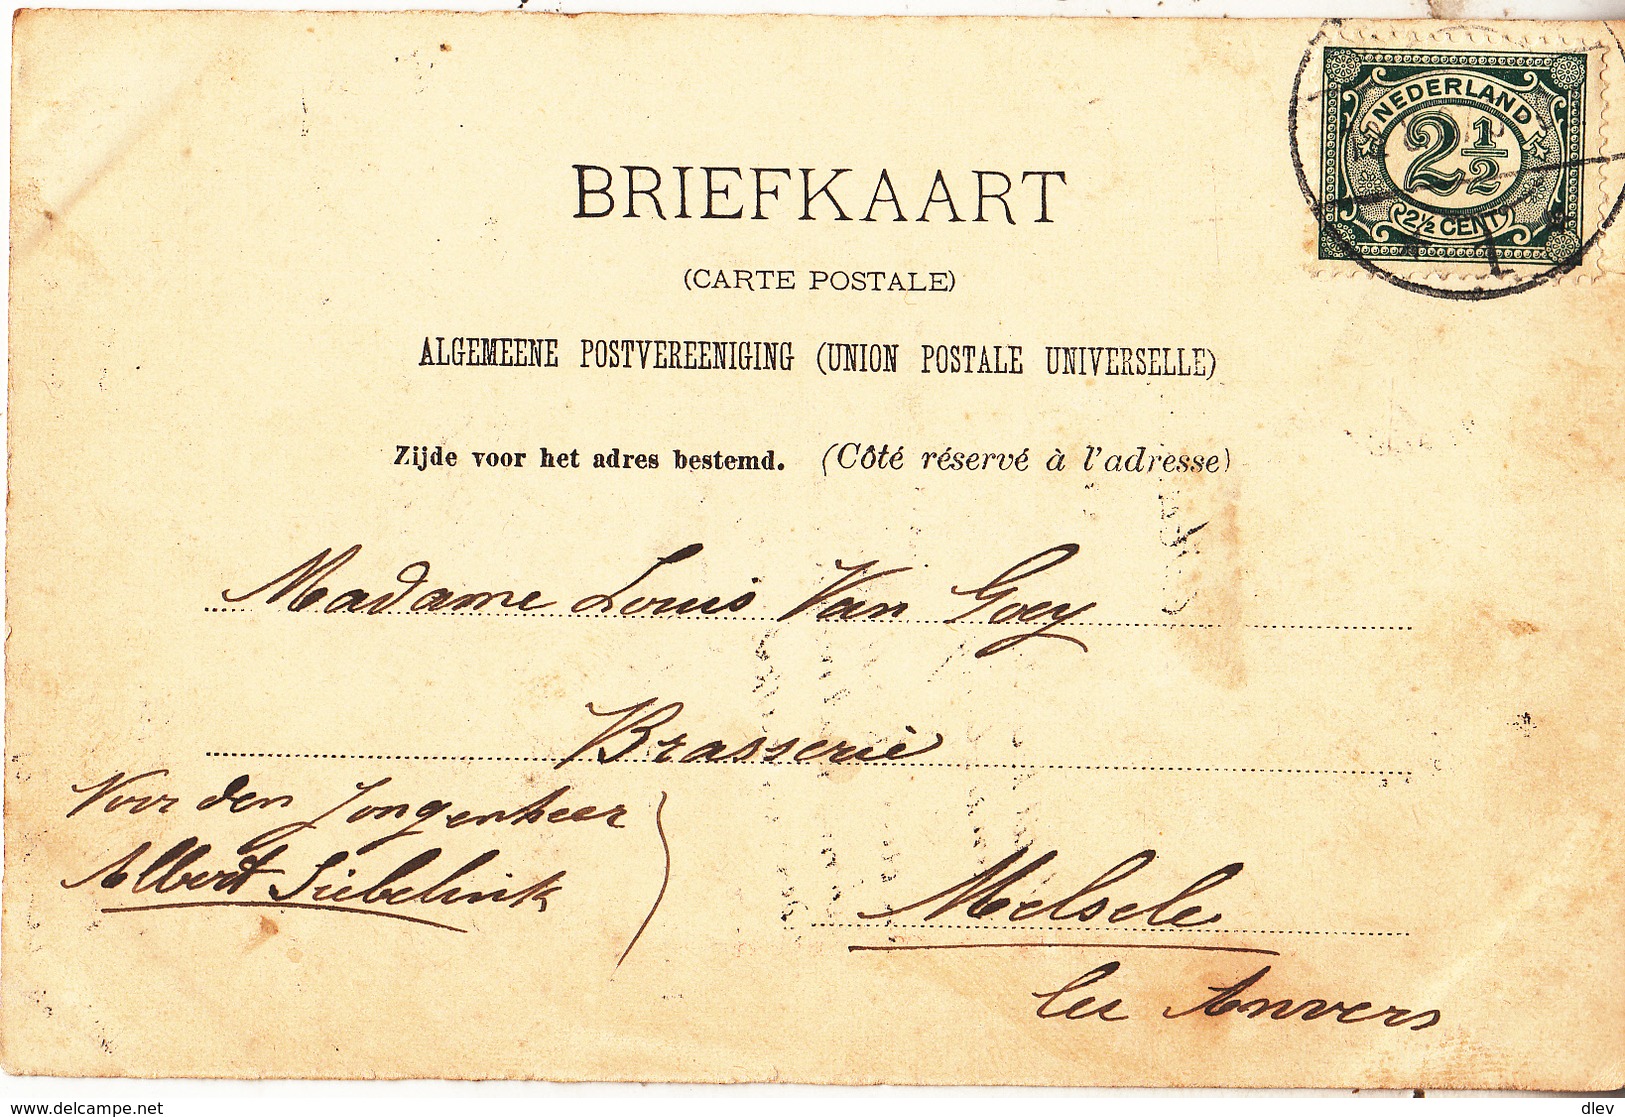 NEDERLAND
2½
2½ CENT
BRIEFKAART
(CARTE POSTALE)
ALGEMEENE POSTVEREENIGING (UNION POSTALE UNIVERSELLE)
Zijde voor het adres bestemd. (Côté réservé à l'adresse)
Madame Louis Van Goey
Brasserie
Voor den Jongenheer
Albert Siebelink
Melsele
lez Anvers
www.delcampe.net
dlev